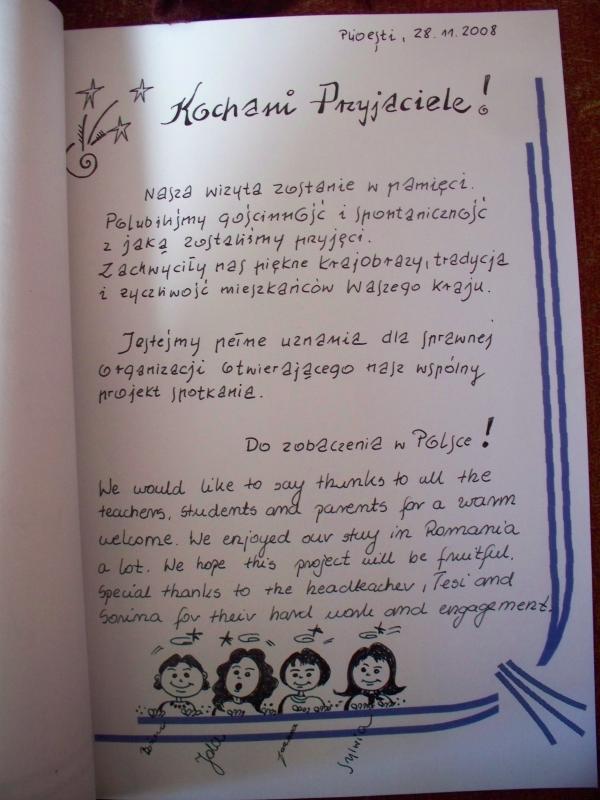 Ploeşti, 28.11.2008
Kochani Przyjaciele!
Nasza wizyta zostanie w pamięci.
Polubiliśmy gościnność i spontaniczność
z jaką zostaliśmy przyjęci.
Zachwyciły nas piękne krajobrazy, tradycja
i życzliwość mieszkańców Waszego kraju.
Jesteśmy pełne uznania dla sprawnej
organizacji otwierającego nasz wspólny
projekt spotkania.
Do zobaczenia w Polsce!
We would like to say thanks to all the
teachers, students and parents for a warm
welcome. We enjoyed our stay in Romania
a lot. We hope this project will be fruitful.
Special thanks to the headteacher, Tesi and
Sorina for their hard work and engagement.
Jola
Sylwia